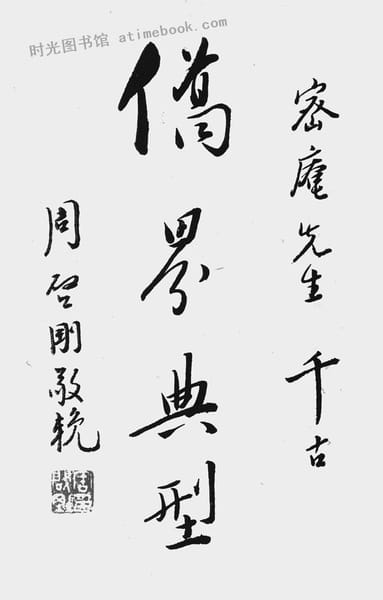 时光图书馆 atimebook.com
密庵先生 千古
僑界典型
周啓剛敬輓